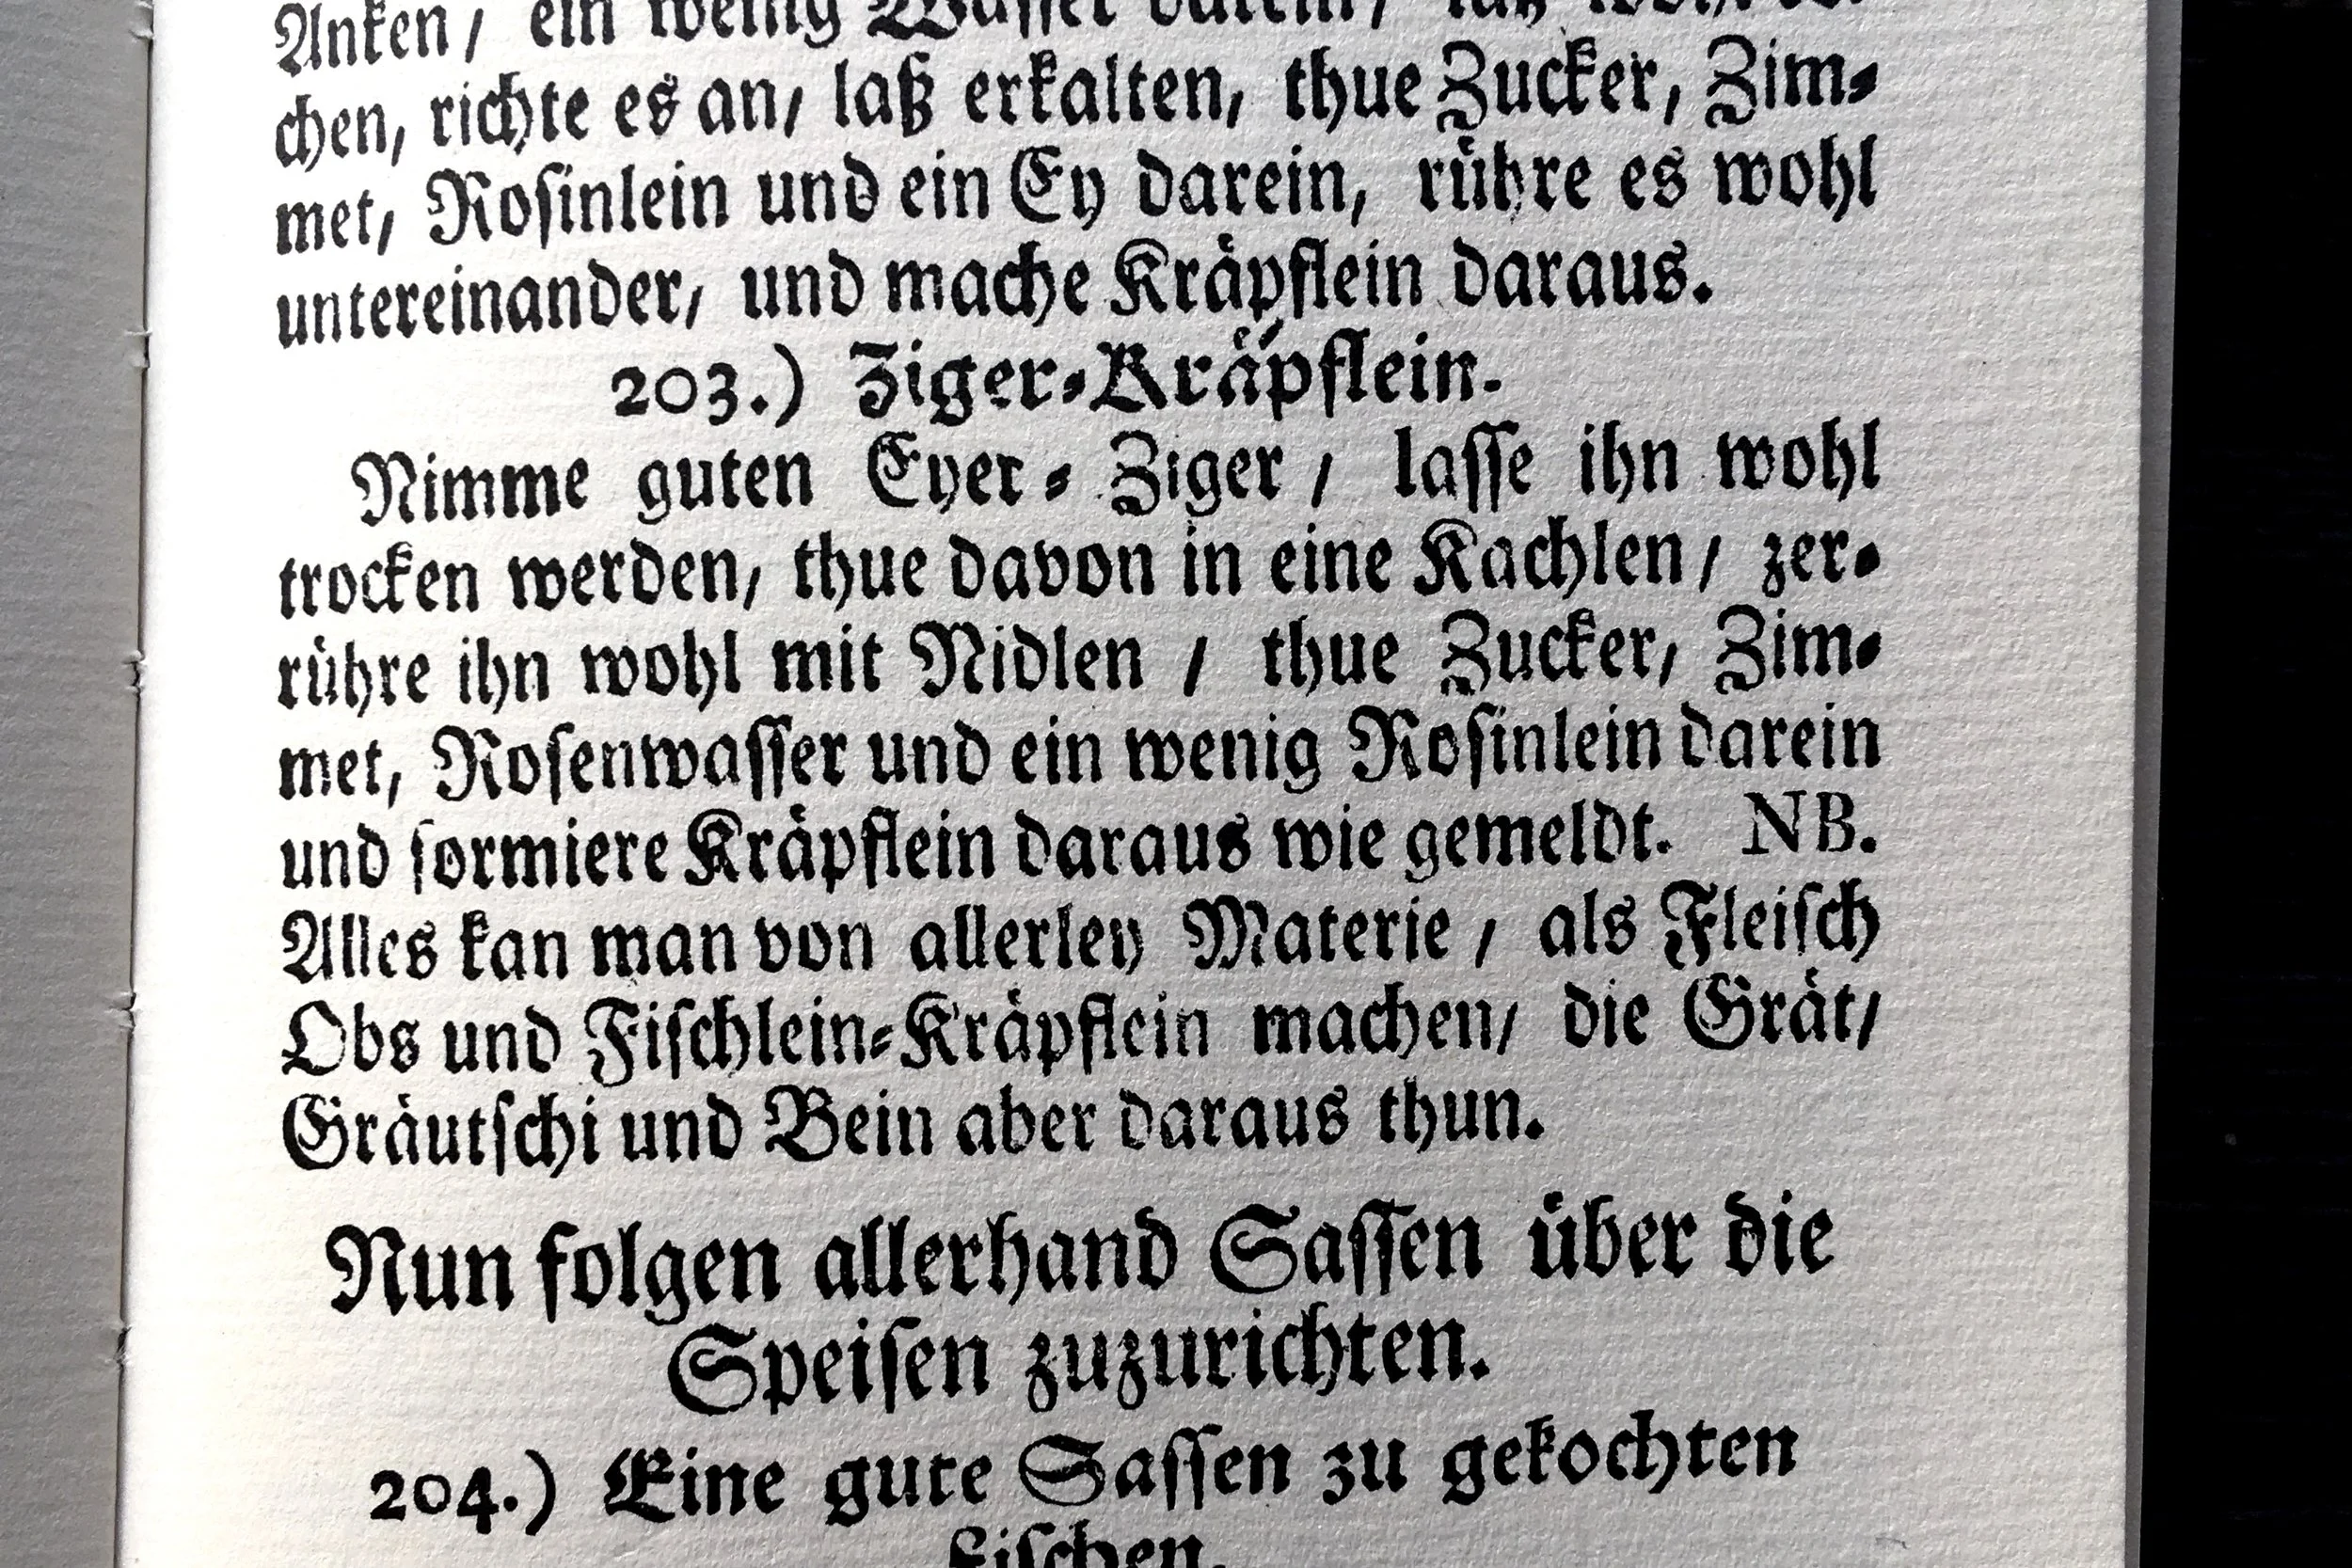 Anken/ ein wenig Wasser darein/
chen, richte es an/ laß erkalten, thue Zucker, Zim-
met/ Rosinlein und ein Ey darein, rühre es wohl
untereinander/ und mache Kräpflein daraus.
203.) Ziger-Kräpflein.
Nimme guten Eyer-Ziger/ lasse ihn wohl
trocken werden, thue davon in eine Kachlen/ zer-
rühre ihn wohl mit Nidlen / thue Zucker, Zim-
met, Rosenwasser und ein wenig Rosinlein darein
und formiere Kräpflein daraus wie gemeldt. NB.
Alles kan man von allerley Materie / als Fleisch
Obs und Fischlein-Kräpflein machen/ die Grät/
Gräutschi und Bein aber daraus thun.
Nun folgen allerhand Sassen über die
Speisen zuzurichten.
204.) Eine gute Sassen zu gekochten
Fischen.